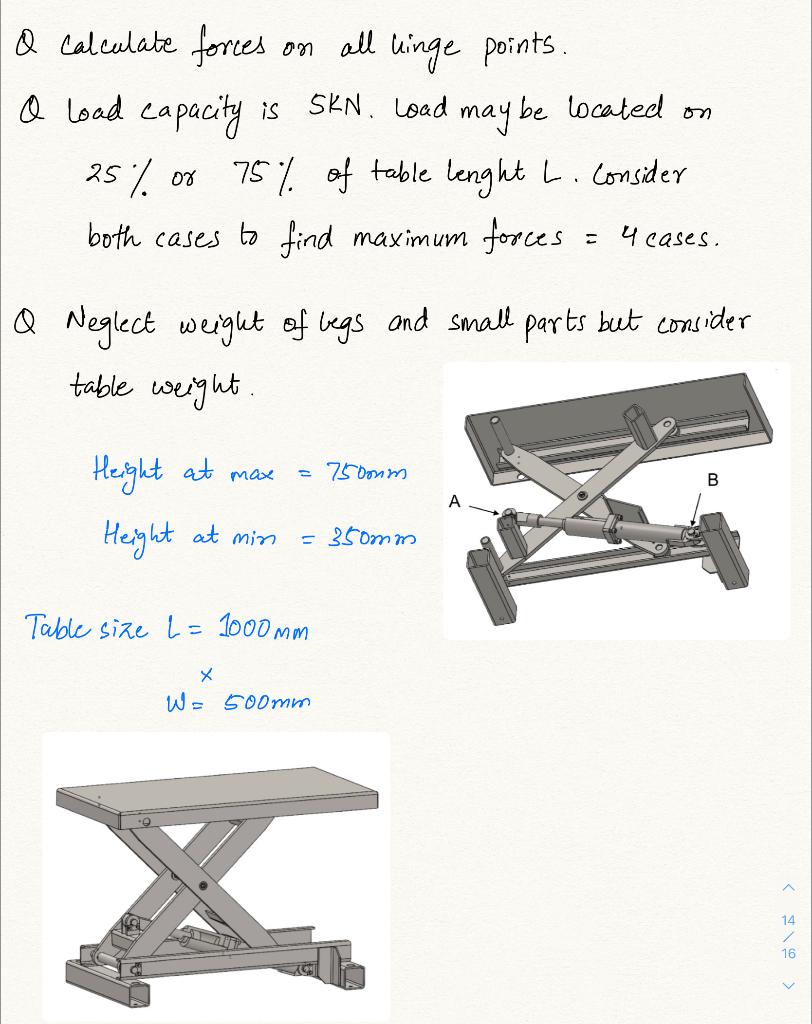 Q Calculate forces on all hinge points.
Q Load capacity is 5KN. Load may be located on
25% or 75% of table lenght L. Consider
both cases to find maximum forces = 4 cases.
Q Neglect weight of legs and small parts but consider
table weight.
Height at max = 750mm
Height at min = 350mm
A
B
Table size L = 1000mm
x
W = 500mm
14
/
16